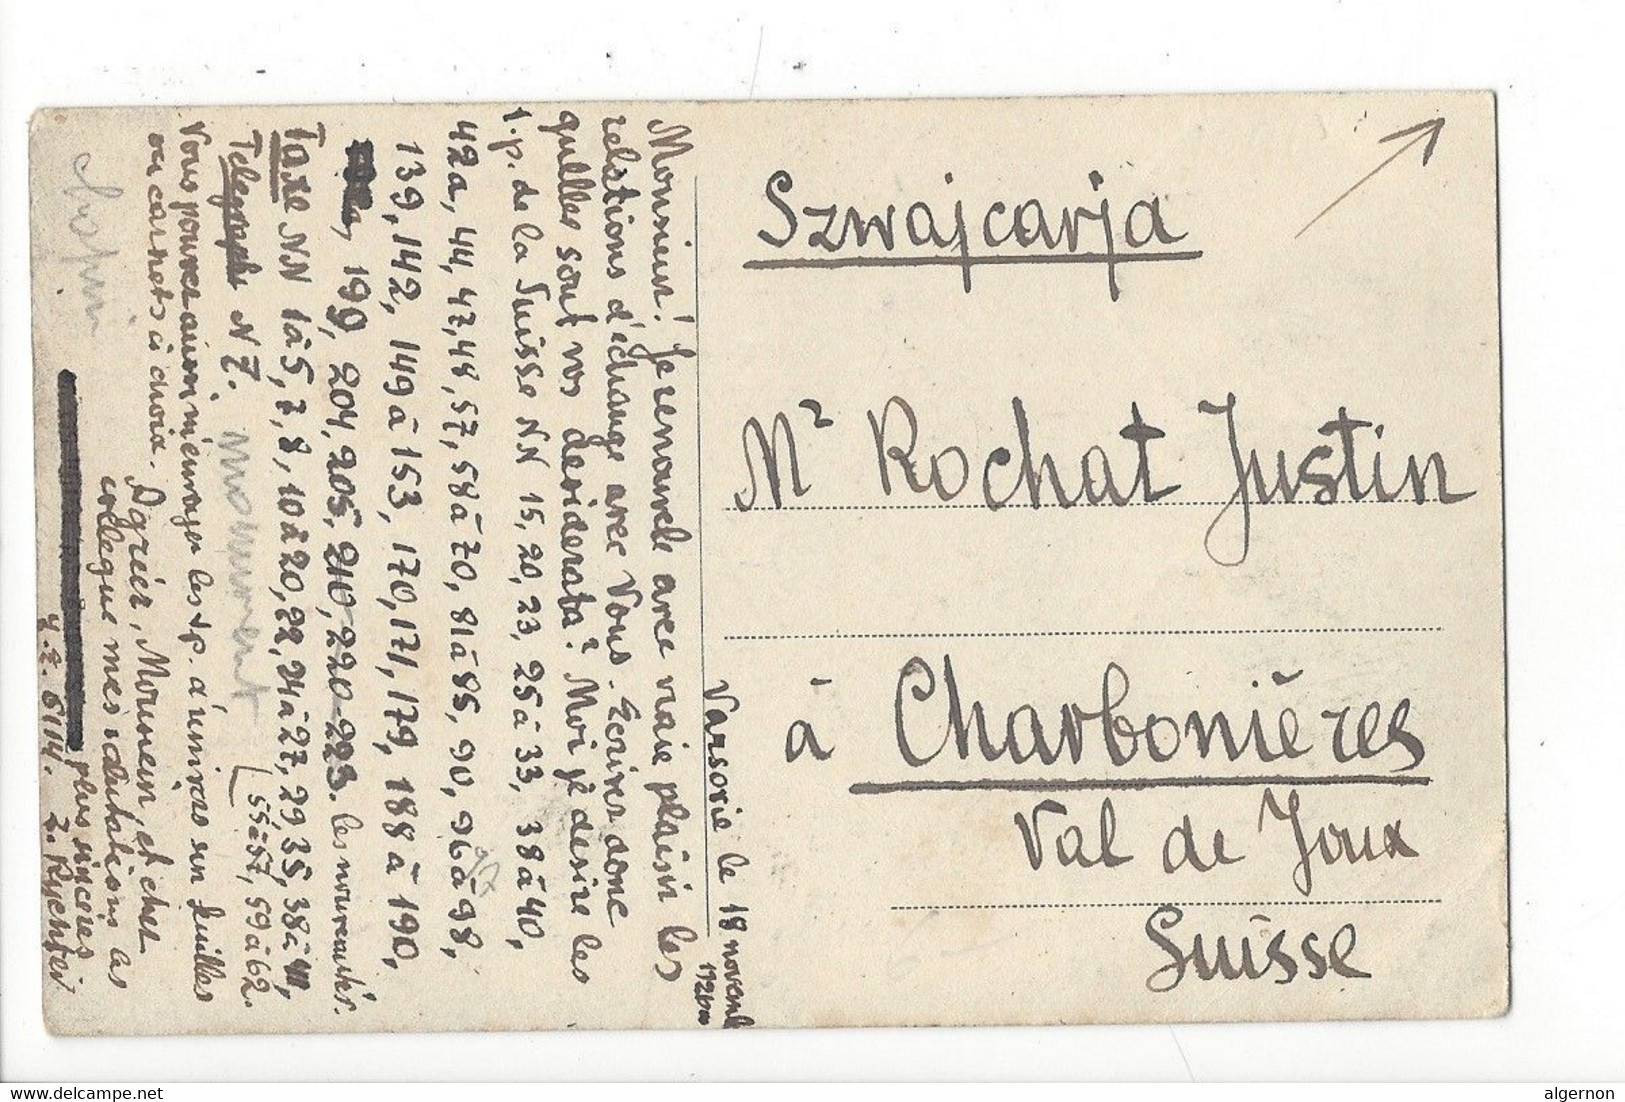 Szwajcarja
Mr Rochat Justin
à Charbonières
Val de Joux
Suisse
Varsovie le 18 novemb
Monsieur! Je renouvele avec vraie plaisir les
relations d'échange avec Vous. Ecrivez donc
quelles sont vos desiderata? Moi je desire les
t.p. de la Suisse NN 15, 20, 23, 25 à 33, 38 à 40,
42a, 44, 47, 48, 57, 58 à 70, 81 à 85, 90, 96 à 98,
97
139, 142, 149 à 153, 170, 171, 179, 188 à 190,
199, 204, 205, 210, 220-223. les nouveautés.
Taxe NN 1 à 5, 7, 8, 10 à 20, 22, 24 à 27, 29 35, 38 à 41,
Telegraphe N 7. (55 à 57, 59 à 62.
monument
Vous pouvez aussi m'envoyer les t.p. d'envoi sur feuilles
ou carnets à choix. Agréez, Monsieur, et cher
collegue mes salutations les
plus sincères
Z. Rychter
y. z. 6114.
delcampe.net
algernon